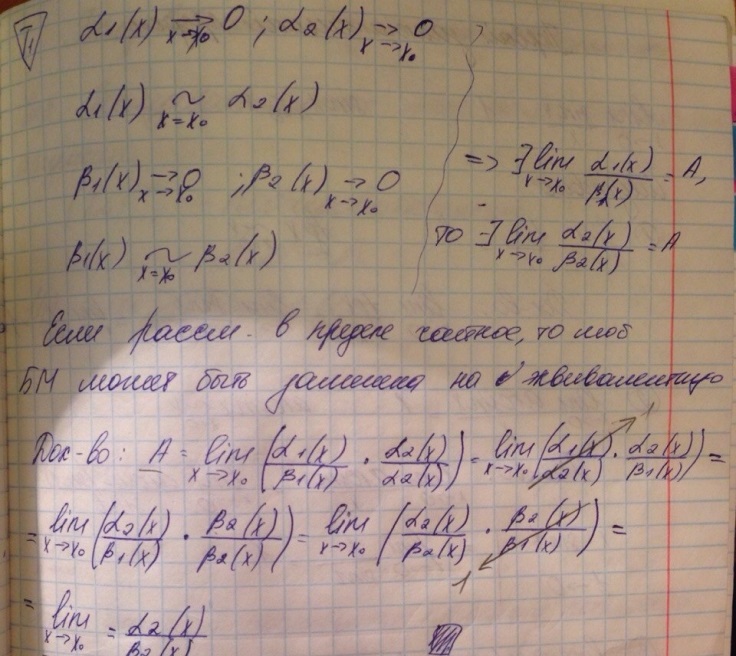 T1 α1(x) →x→x0 0 ; α2(x) →x→x0 0
α1(x) ~x=x0 α2(x)
β1(x) →x→x0 0 ; β2(x) →x→x0 0
β1(x) ~x=x0 β2(x)
=> ∃ lim x→x0 α1(x)/β1(x) = A,
то ∃ lim x→x0 α2(x)/β2(x) = A
Если рассм. в пределе частное, то люб
БМ может быть заменена на эквивалентную
Док-во: A = lim x→x0 (α1(x)/β1(x) · α2(x)/α2(x)) = lim x→x0 (α1(x)/α2(x) · α2(x)/β1(x)) = 1
= lim x→x0 (α2(x)/β1(x) · β2(x)/β2(x)) = lim x→x0 (α2(x)/β2(x) · β2(x)/β1(x)) = 1
= lim x→x0 = α2(x)/β2(x)